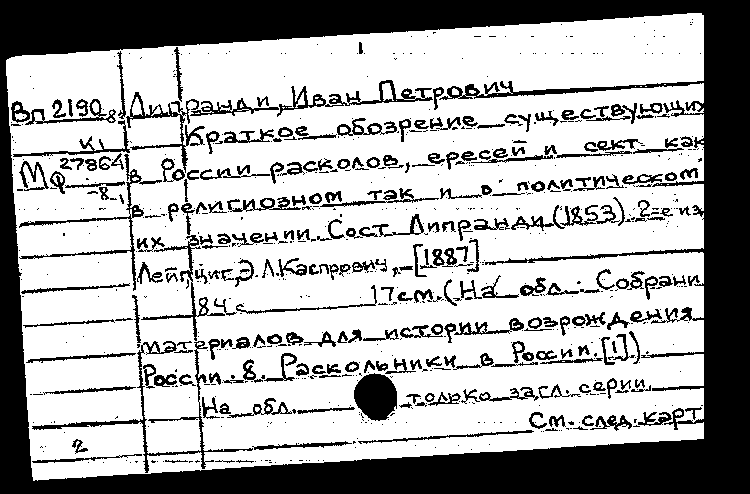 Вп 2190-8² Липранди, Иван Петрович
К1
Краткое обозрение существующих
Мф 27864-8,1
в России расколов, ересей и сект как
в религиозном так и в политическом
их значении. Сост. Липранди (1853) 2-е из
Лейпциг, Э.Л.Каспрович, [1887]
84 с 17см. (На обл.: Собрани
материалов для истории возрождения
России. 8. Раскольники в России. [1]).
На обл. только загл. серии.
См. след. карт
2